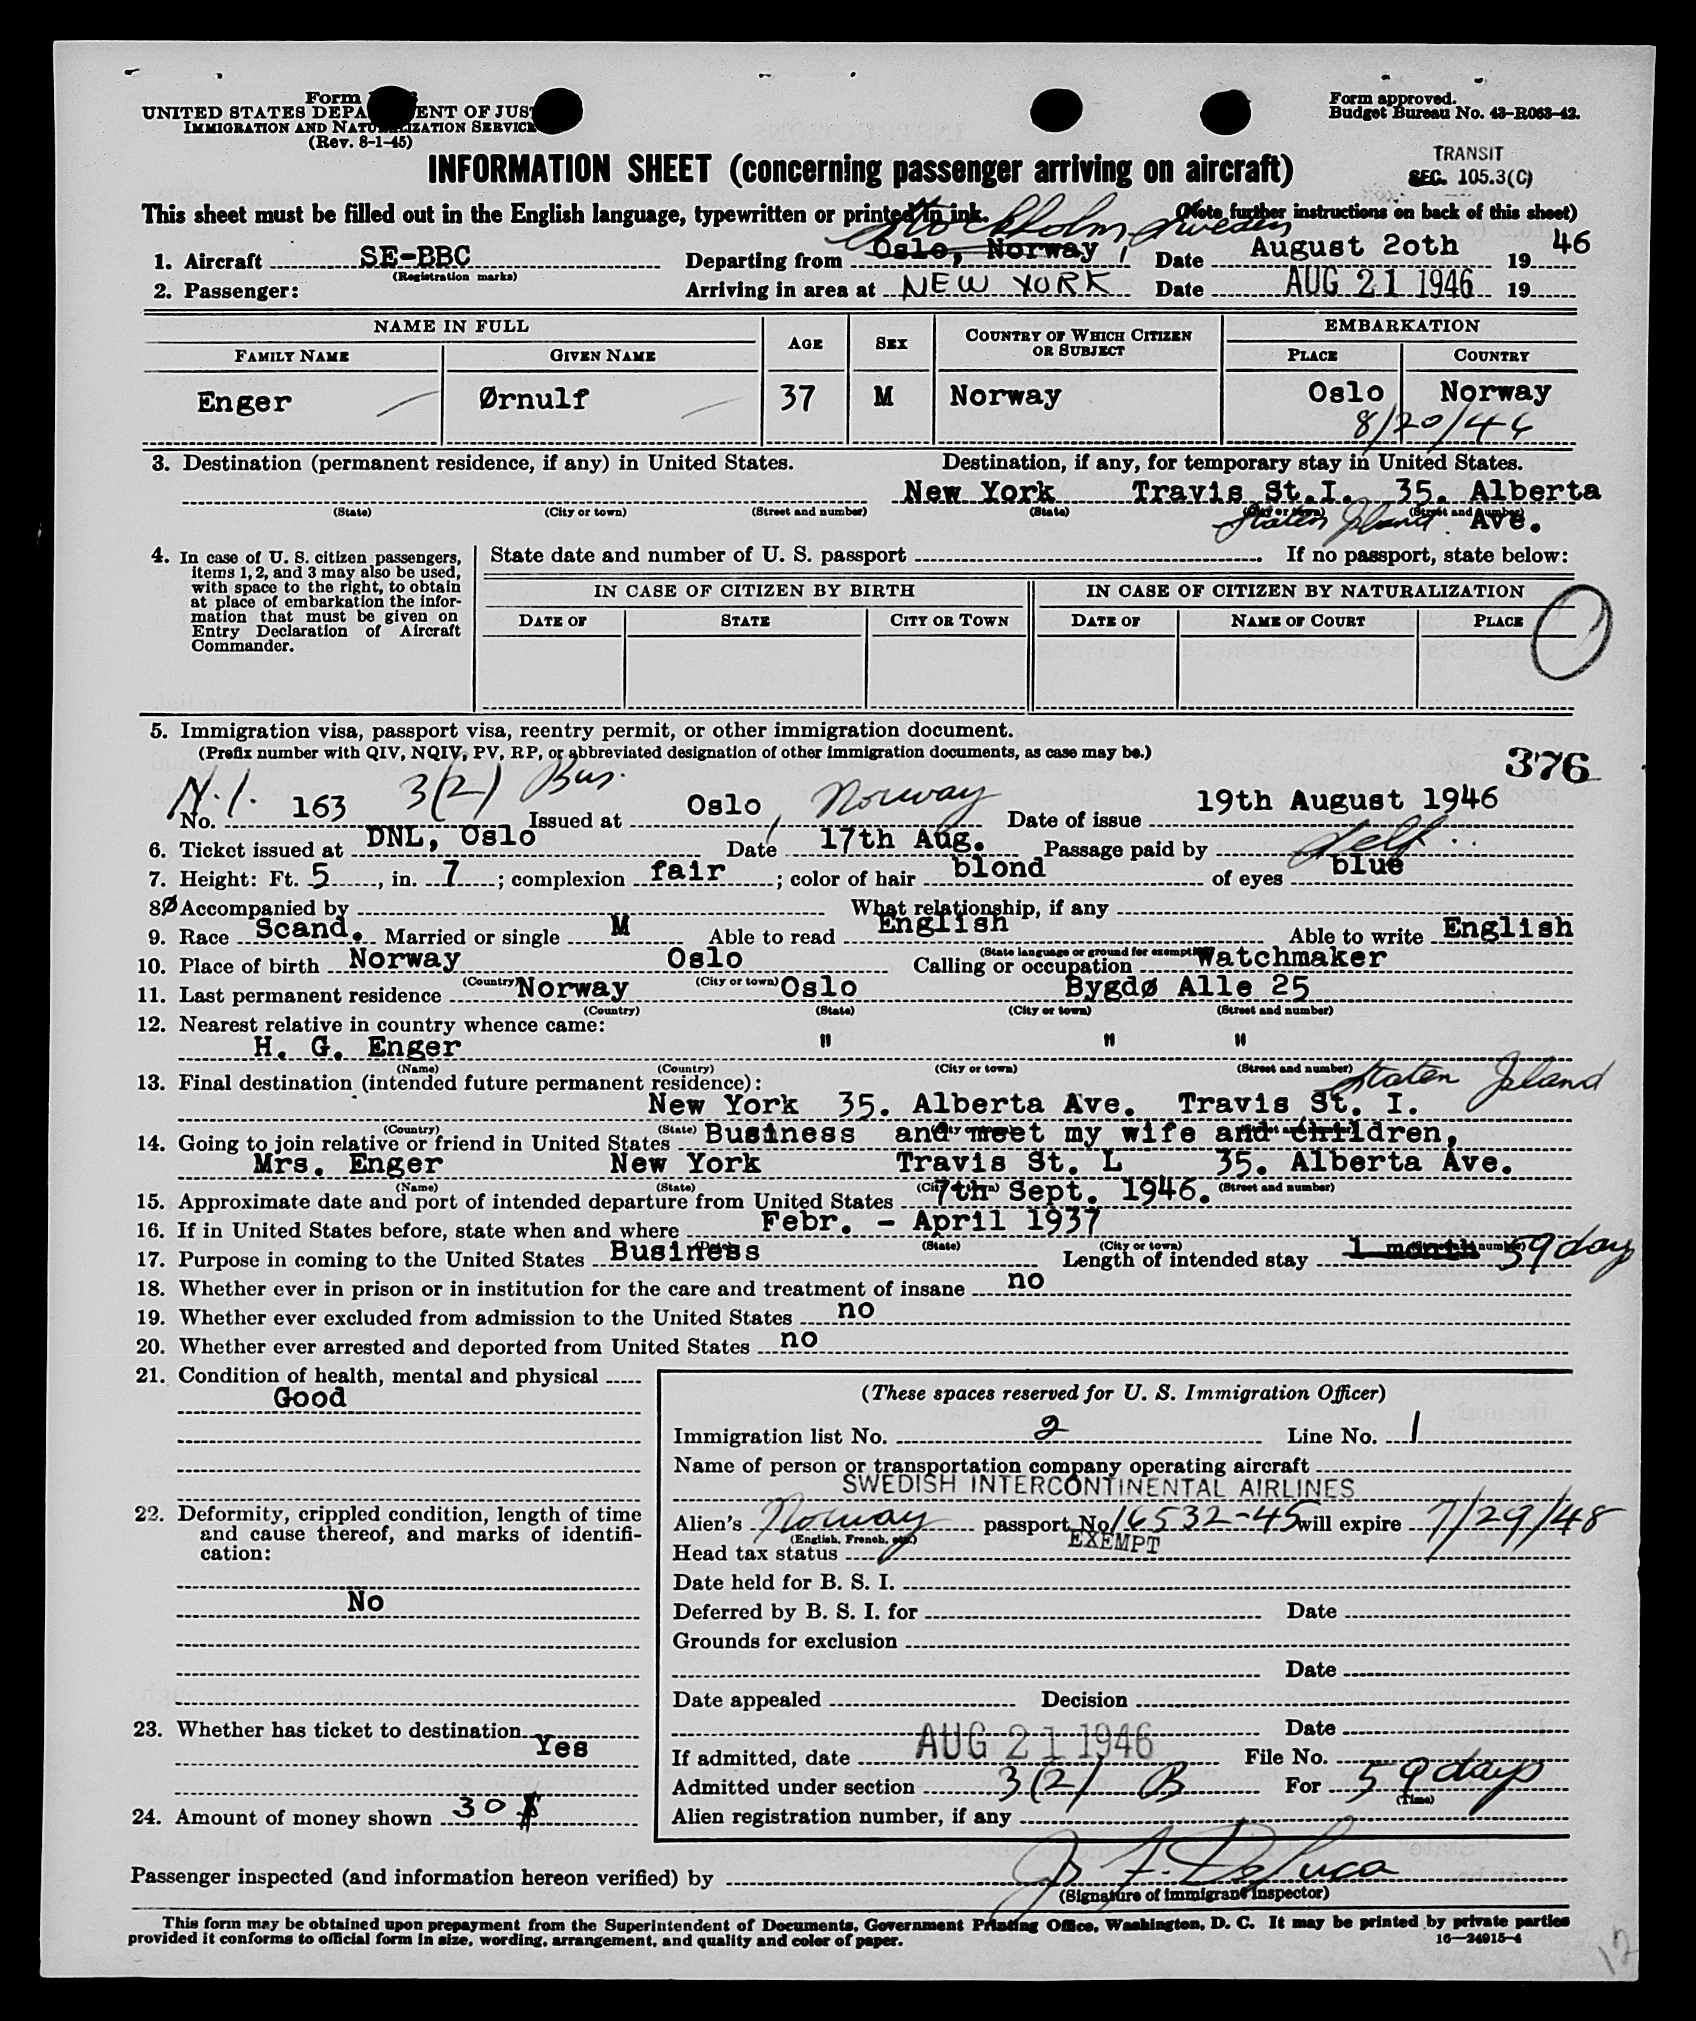 Form
UNITED STATES DEPA ENT OF JUS
IMMIGRATION AND NATURALIZATION SERVICE
(Rev. 8-1-45)
Form approved.
Budget Bureau No. 43-R063-42.
TRANSIT
SEC. 105.3(C)
INFORMATION SHEET (concerning passenger arriving on aircraft)
This sheet must be filled out in the English language, typewritten or printed in ink. (Note further instructions on back of this sheet)
Stockholm, Sweden
1. Aircraft SE-BBC Departing from Oslo, Norway Date August 2oth 19 46
(Registration marks)
2. Passenger: Arriving in area at NEW YORK Date AUG 21 1946 19
NAME IN FULL AGE SEX COUNTRY OF WHICH CITIZEN OR SUBJECT EMBARKATION
FAMILY NAME GIVEN NAME PLACE COUNTRY
Enger Ørnulf 37 M Norway Oslo Norway
8/20/46
3. Destination (permanent residence, if any) in United States. Destination, if any, for temporary stay in United States.
New York Travis St.I. 35. Alberta
(State) (City or town) (Street and number) (State) (City or town) (Street and number)
Staten Island Ave.
4. In case of U. S. citizen passengers, items 1, 2, and 3 may also be used, with space to the right, to obtain at place of embarkation the information that must be given on Entry Declaration of Aircraft Commander.
State date and number of U. S. passport If no passport, state below:
IN CASE OF CITIZEN BY BIRTH IN CASE OF CITIZEN BY NATURALIZATION
DATE OF STATE CITY OR TOWN DATE OF NAME OF COURT PLACE
5. Immigration visa, passport visa, reentry permit, or other immigration document.
(Prefix number with QIV, NQIV, PV, RP, or abbreviated designation of other immigration documents, as case may be.)
376
N.I. 3(2) Bus.
No. 163 Issued at Oslo, Norway Date of issue 19th August 1946
6. Ticket issued at DNL, Oslo Date 17th Aug. Passage paid by Self
7. Height: Ft. 5, in. 7; complexion fair; color of hair blond of eyes blue
8. Ø Accompanied by What relationship, if any
9. Race Scand. Married or single M Able to read English Able to write English
(State language or ground for exemption)
10. Place of birth Norway Oslo Calling or occupation Watchmaker
(Country) (City or town)
11. Last permanent residence Norway Oslo Bygdø Alle 25
(Country) (State) (City or town) (Street and number)
12. Nearest relative in country whence came:
H. G. Enger " " "
(Name) (Country) (City or town) (Street and number)
13. Final destination (intended future permanent residence): Staten Island
New York 35. Alberta Ave. Travis St. I.
(Country) (State) (City or town) (Street and number)
14. Going to join relative or friend in United States Business and meet my wife and children,
Mrs. Enger New York Travis St. L 35. Alberta Ave.
(Name) (State) (City or town) (Street and number)
15. Approximate date and port of intended departure from United States 7th Sept. 1946.
16. If in United States before, state when and where Febr. - April 1937
(Date) (State) (City or town) (Street and number)
17. Purpose in coming to the United States Business Length of intended stay 1 month 59 days
18. Whether ever in prison or in institution for the care and treatment of insane no
19. Whether ever excluded from admission to the United States no
20. Whether ever arrested and deported from United States no
21. Condition of health, mental and physical
Good
22. Deformity, crippled condition, length of time and cause thereof, and marks of identification:
No
23. Whether has ticket to destination
Yes
24. Amount of money shown 30 $
(These spaces reserved for U. S. Immigration Officer)
Immigration list No. 2 Line No. 1
Name of person or transportation company operating aircraft
SWEDISH INTERCONTINENTAL AIRLINES
Alien's Norway passport No. 16532-45 will expire 7/29/48
(English, French, etc.)
Head tax status EXEMPT
Date held for B. S. I.
Deferred by B. S. I. for Date
Grounds for exclusion
Date
Date appealed Decision
Date
If admitted, date AUG 21 1946 File No.
Admitted under section 3(2) B For 59 days
(Time)
Alien registration number, if any
Passenger inspected (and information hereon verified) by J. F. DeLuca
(Signature of immigrant inspector)
This form may be obtained upon prepayment from the Superintendent of Documents, Government Printing Office, Washington, D. C. It may be printed by private parties
provided it conforms to official form in size, wording, arrangement, and quality and color of paper.
16—24915-4
12